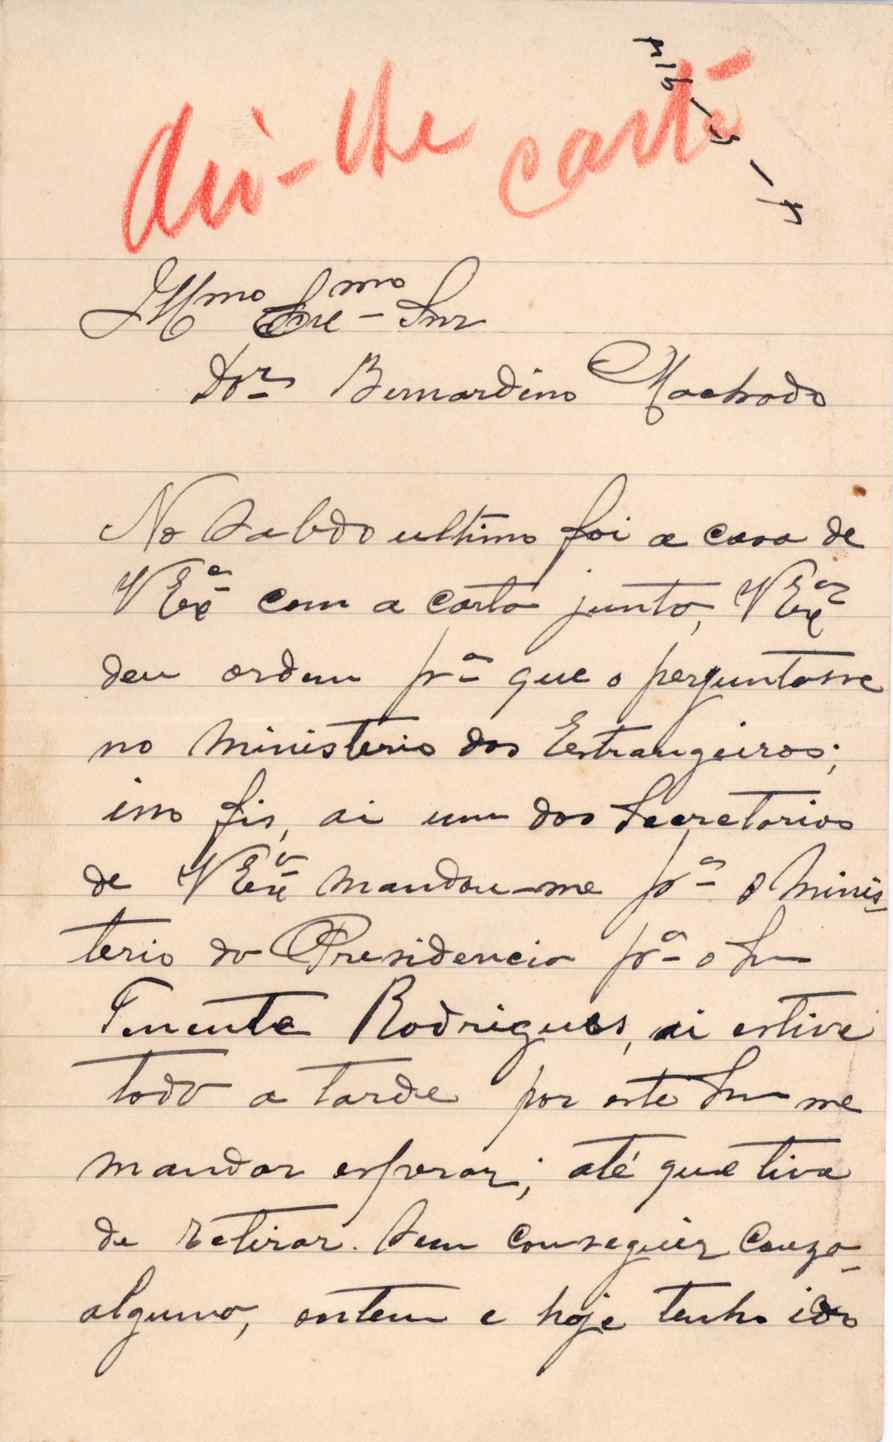 dei-lhe cartã
Illmo Exmo Snr
Dor Bernardino Machado
No Sabdo ultimo foi a casa de
V Exa com a carta junto, V Exa
deu ordem pra que o perguntasse
no Ministerio dos Estrangeiros;
isso fis, ai um dos Secretarios
de V Exa mandou-me pra o Minis-
terio do Presidencia pra o Sr
Tenente Rodrigues, ai estive
todo a tarde por este Sr me
mandar esperar; até que tive
de retirar. Sem conseguir couza
alguma, ontem e hoje tenho ido